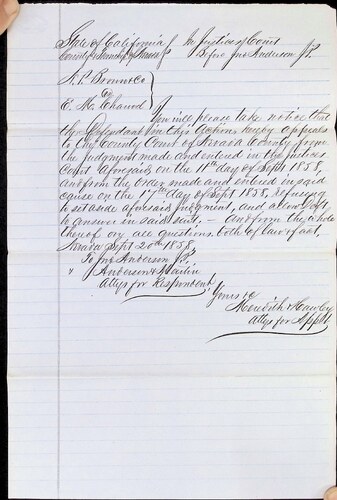 State of California } In Justices Court
County & Township of Nevada } Before Jno Anderson J.P.
A. P. Brown & Co
vs
E. H.
You will please take notice that
the Defendant in this Action hereby appeals
to the County Court of Nevada County from
the judgment made and entered in the justices
Court aforesaid on the 11th day of Sept 1858,
and from the order made and entered in said
cause on the 17th day of Sept 1858, refusing
to set aside aforesaid judgment, and allow Deft.
to answer in said suit. — And from the whole
thereof on all questions both of law & fact.
Nevada Sept 20th 1858.
To Jno Anderson J.P.
" Anderson & Martin
Attys for Respondent
Yours &c
Meredith & Hawley
Attys for Applt